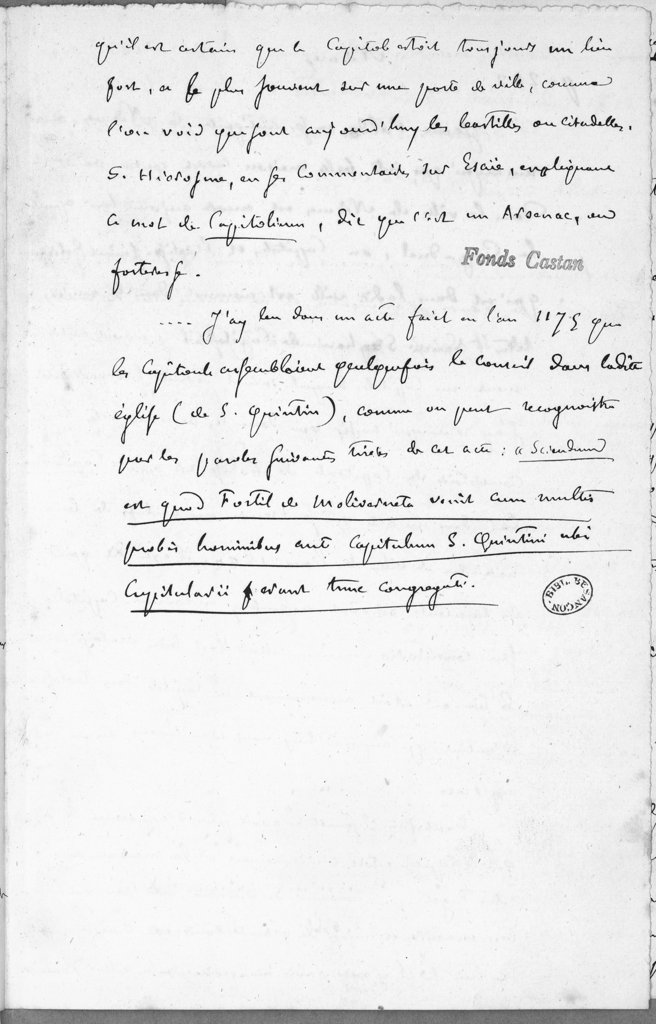 qu'il est certain que le Capitole estoit tousjours un lieu
fort, et le plus souvent sur une porte de ville, comme
l'on void que sont aujourd'huy les bastilles ou citadelles.
S. Hierosme, en ses Commentaires sur Esaïe, expliquant
ce mot de Capitolium, dit que c'est un Arsenac, ou
forteresse.
Fonds Castan
.... J'ay leu dans un acte faict en l'an 1175 que
les Capitouls assembloient quelquefois le conseil dans ladite
église (de S. Quintin), comme on peut recognoistre
par les paroles suivantes tirées de cet acte : « Sciendum
est quod Fortil de Moliverneta venit cum multis
probis hominibus ant Capitulum S. Quintini ubi
Capitularii erant tunc congregati.
BIBL. BESANÇON